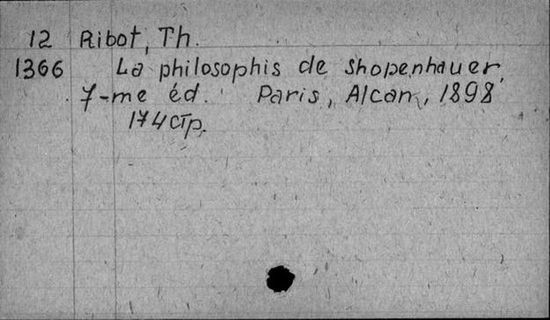 12 Ribot, Th.
1366 La philosophis de Shopenhauer,
7-me éd. Paris, Alcan, 1898
174 стр.